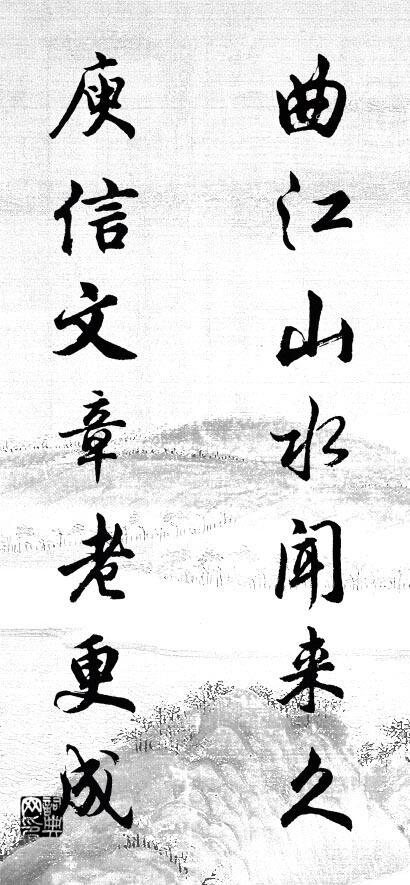 曲江山水闻来久
庾信文章老更成